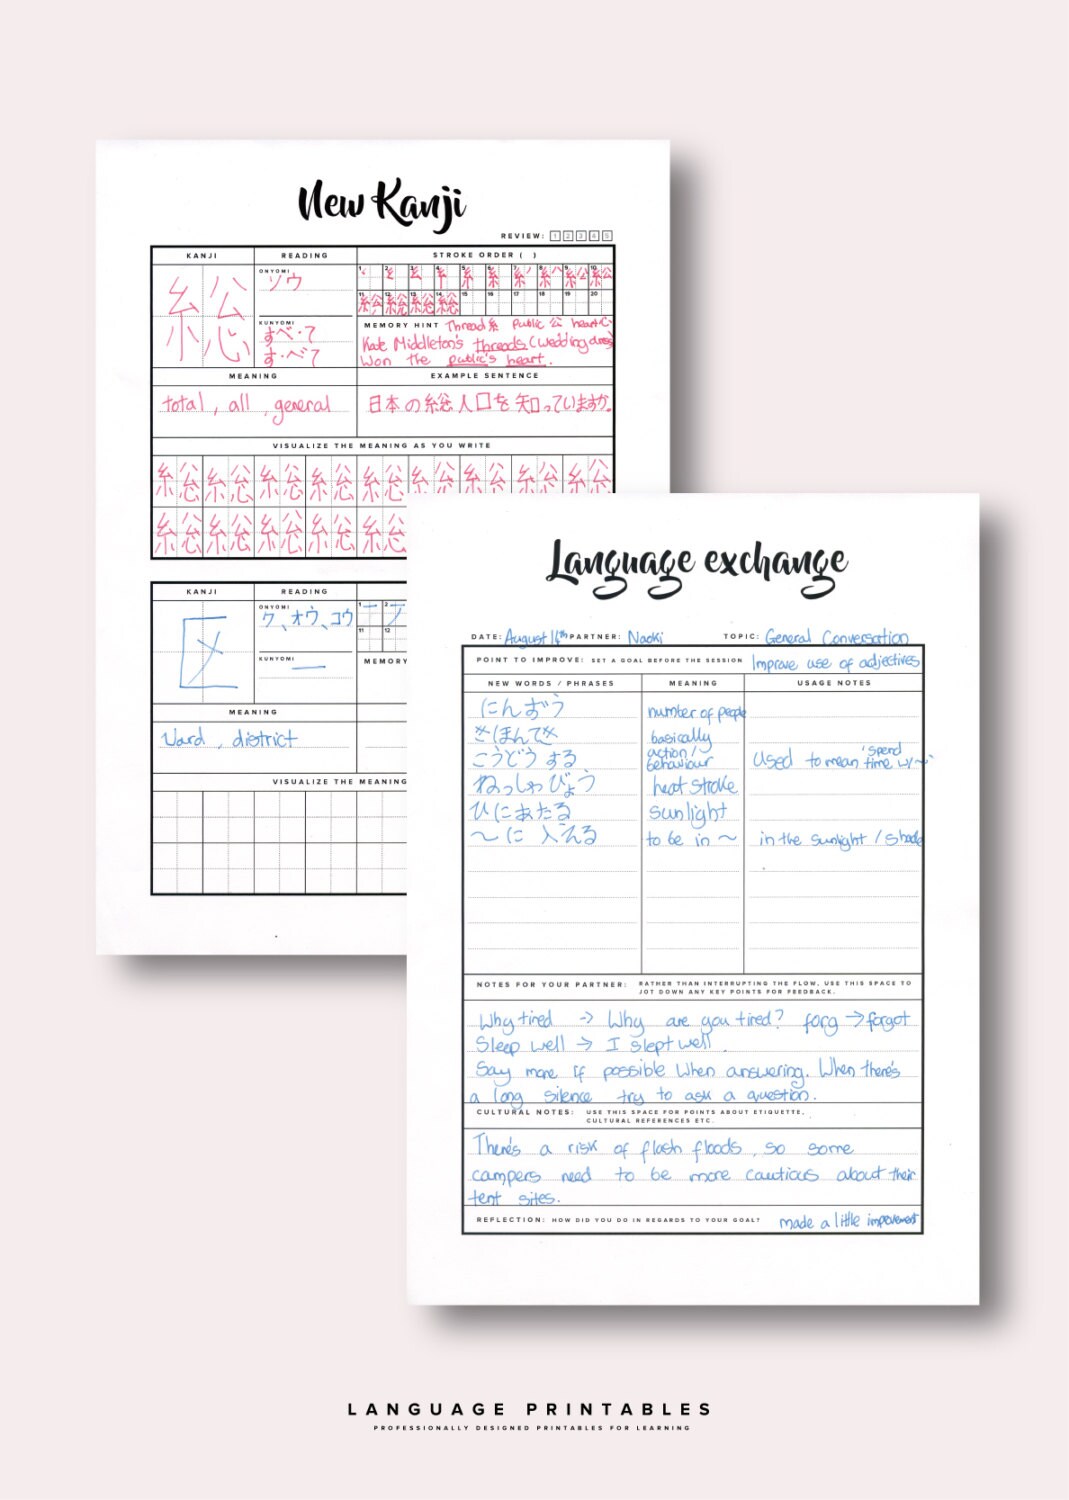 New Kanji
REVIEW: 1 2 3 4 5
KANJI READING STROKE ORDER ( )
総
ONYOMI
ソウ
KUNYOMI
すべ・て
す・べて
1 2 3 4 5 6 7 8 9 10
11 12 13 14 15 16 17 18 19 20
MEMORY HINT Thread 糸 Public 公 heart 心
Kate Middleton's threads (wedding dress)
Won the public's heart.
MEANING EXAMPLE SENTENCE
total, all, general 日本の総人口を知っていますか。
VISUALIZE THE MEANING AS YOU WRITE
総 総 総 総 総 総 総 総 総
総 総 総 総 総
KANJI READING
区
ONYOMI
ク、オウ、コウ
1 2
11 12
KUNYOMI
—
MEMORY
MEANING
Ward, district
VISUALIZE THE MEANING
Language exchange
DATE: August 16th PARTNER: Naoki TOPIC: General Conversation
POINT TO IMPROVE: SET A GOAL BEFORE THE SESSION Improve use of adjectives
NEW WORDS / PHRASES MEANING USAGE NOTES
にんずう number of people
きほんてき basically
こうどうする action / behaviour Used to mean 'spend time w/~'
ねっしゃびょう heat stroke
ひにあたる sunlight
〜に入える to be in ~ in the sunlight / shade
NOTES FOR YOUR PARTNER: RATHER THAN INTERRUPTING THE FLOW, USE THIS SPACE TO
JOT DOWN ANY KEY POINTS FOR FEEDBACK.
Why tired -> Why are you tired? forg -> forgot
Sleep well -> I slept well.
Say more if possible when answering. When there's
a long silence try to ask a question.
CULTURAL NOTES: USE THIS SPACE FOR POINTS ABOUT ETIQUETTE,
CULTURAL REFERENCES ETC.
There's a risk of flash floods, so some
campers need to be more cautious about their
tent sites.
REFLECTION: HOW DID YOU DO IN REGARDS TO YOUR GOAL? made a little improvement
LANGUAGE PRINTABLES
PROFESSIONALLY DESIGNED PRINTABLES FOR LEARNING